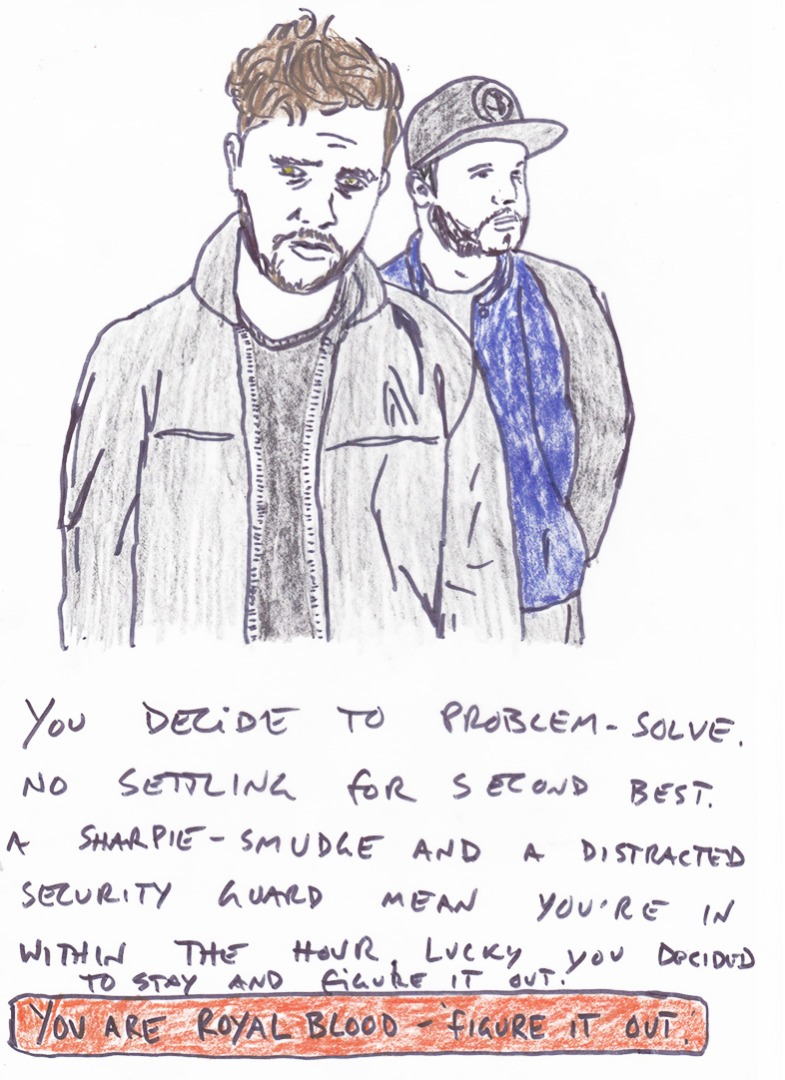 YOU DECIDE TO PROBLEM-SOLVE.
NO SETTLING FOR SECOND BEST.
A SHARPIE-SMUDGE AND A DISTRACTED
SECURITY GUARD MEAN YOU'RE IN
WITHIN THE HOUR. LUCKY YOU DECIDED
TO STAY AND FIGURE IT OUT.
YOU ARE ROYAL BLOOD - 'FIGURE IT OUT.'